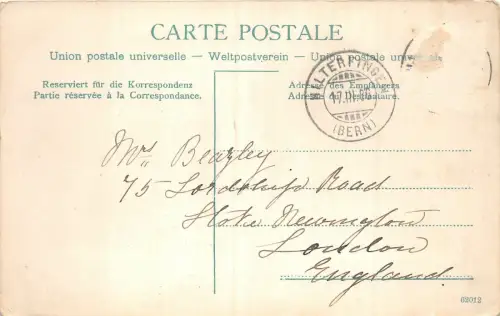 CARTE POSTALE
Union postale universelle — Weltpostverein — Union postale
Reserviert für die Korrespondenz
Partie réservée à la Correspondance.
Adresse des Empfängers
Adresse du Destinataire.
HILTERFINGEN
(BERN)
Mrs Beazley
75 Lordship Road
Stoke Newington
London
England
62012